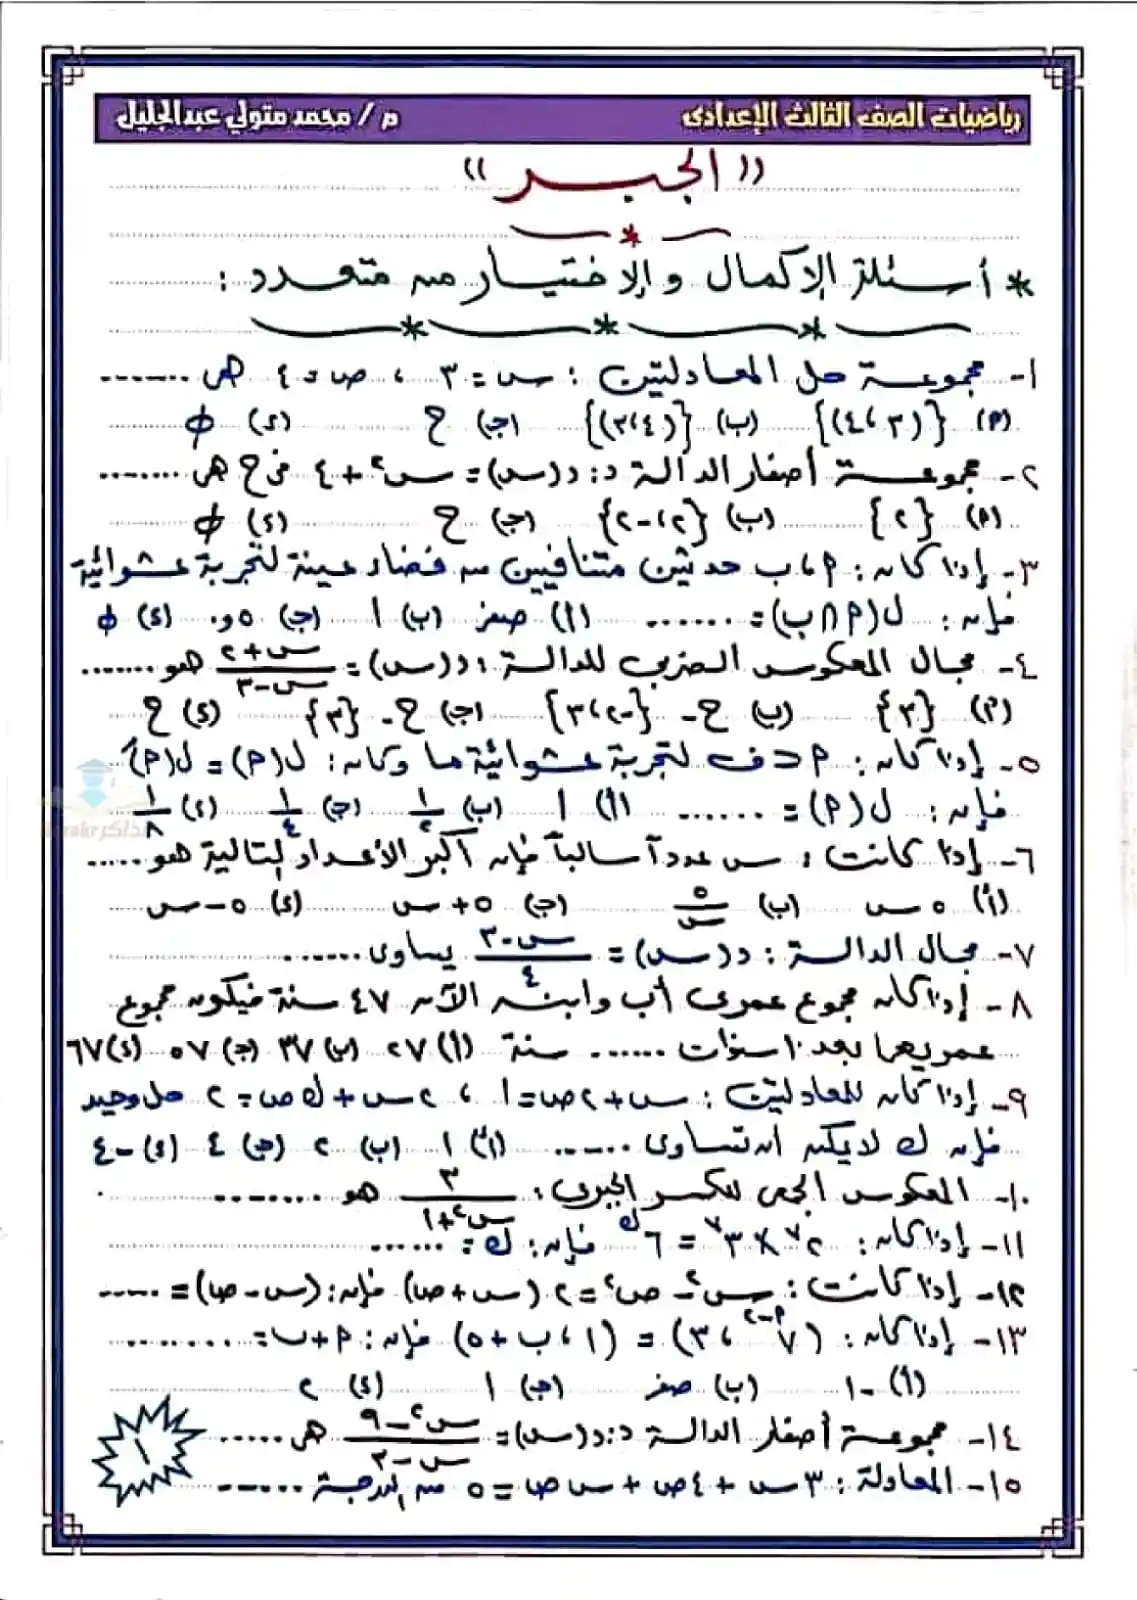 رياضيات الصف الثالث الإعدادى م / محمد متولي عبدالجليل
(( الجبـر ))
* أسئلة الإكمال والإختيار من متعدد :
١- مجموعة حل المعادلتين : س = ٣ ، ص = ٤ هى .......
(م) {(٣ ، ٤)} (ب) {(٤ ، ٣)} (جـ) ح (د) ϕ
٢- مجموعة أصفار الدالة د : د(س) = س² + ٤ فى ح هى ........
(م) {٢} (ب) {٢ ، -٢} (جـ) ح (د) ϕ
٣- إذا كان : م ، ب حدثين متنافيين من فضاء عينة لتجربة عشوائية
فإن : ل(م ∩ ب) = ....... (أ) صفر (ب) ١ (جـ) ٥و٠ (د) ϕ
٤- مجال المعكوس الضربى للدالة : د(س) = (س + ٢)/(س - ٣) هو .......
(م) {٣} (ب) ح - {-٢ ، ٣} (جـ) ح - {٣} (د) ح
٥- إذا كان : م ⊂ ف لتجربة عشوائية ما وكان : ل(م) = ل(م́)
فإن : ل(م) = ....... (أ) ١ (ب) ١/٢ (جـ) ١/٤ (د) ١/٨
ذاكر
٦- إذا كانت : س عدداً سالباً فإن أكبر الأعداد التالية هو .....
(أ) ٥ س (ب) ٥/س (جـ) ٥ + س (د) ٥ - س
٧- مجال الدالة : د(س) = (س - ٣)/٤ يساوى .......
٨- إذا كان مجموع عمرى أب وابنه الآن ٤٧ سنة فيكون مجموع
عمريهما بعد ١٠ سنوات ...... سنة (أ) ٢٧ (ب) ٣٧ (جـ) ٥٧ (د) ٦٧
٩- إذا كان للمعادلتين : س + ٢ص = ١ ، ٢س + ك ص = ٢ حل وحيد
فإن ك لا يمكن أن تساوى ...... (أ) ١ (ب) ٢ (جـ) ٤ (د) -٤
١٠- المعكوس الجمعى للكسر الجبرى : ٣/(س² + ١) هو ........
١١- إذا كان : ٢⁷ × ٣⁷ = ٦ᵏ فإن : ك = ......
١٢- إذا كانت : س² - ص² = ٢ (س + ص) فإن : (س - ص) = .....
١٣- إذا كان : (٧^(م-٢) ، ٣) = (١ ، ب + ٥) فإن : م + ب = .........
(أ) -١ (ب) صفر (جـ) ١ (د) ٢
١٤- مجموعة أصفار الدالة د : د(س) = (س² - ٩)/(س - ٣) هى .....
١٥- المعادلة : ٣س + ٤ص + س ص = ٥ من الدرجة ......
١